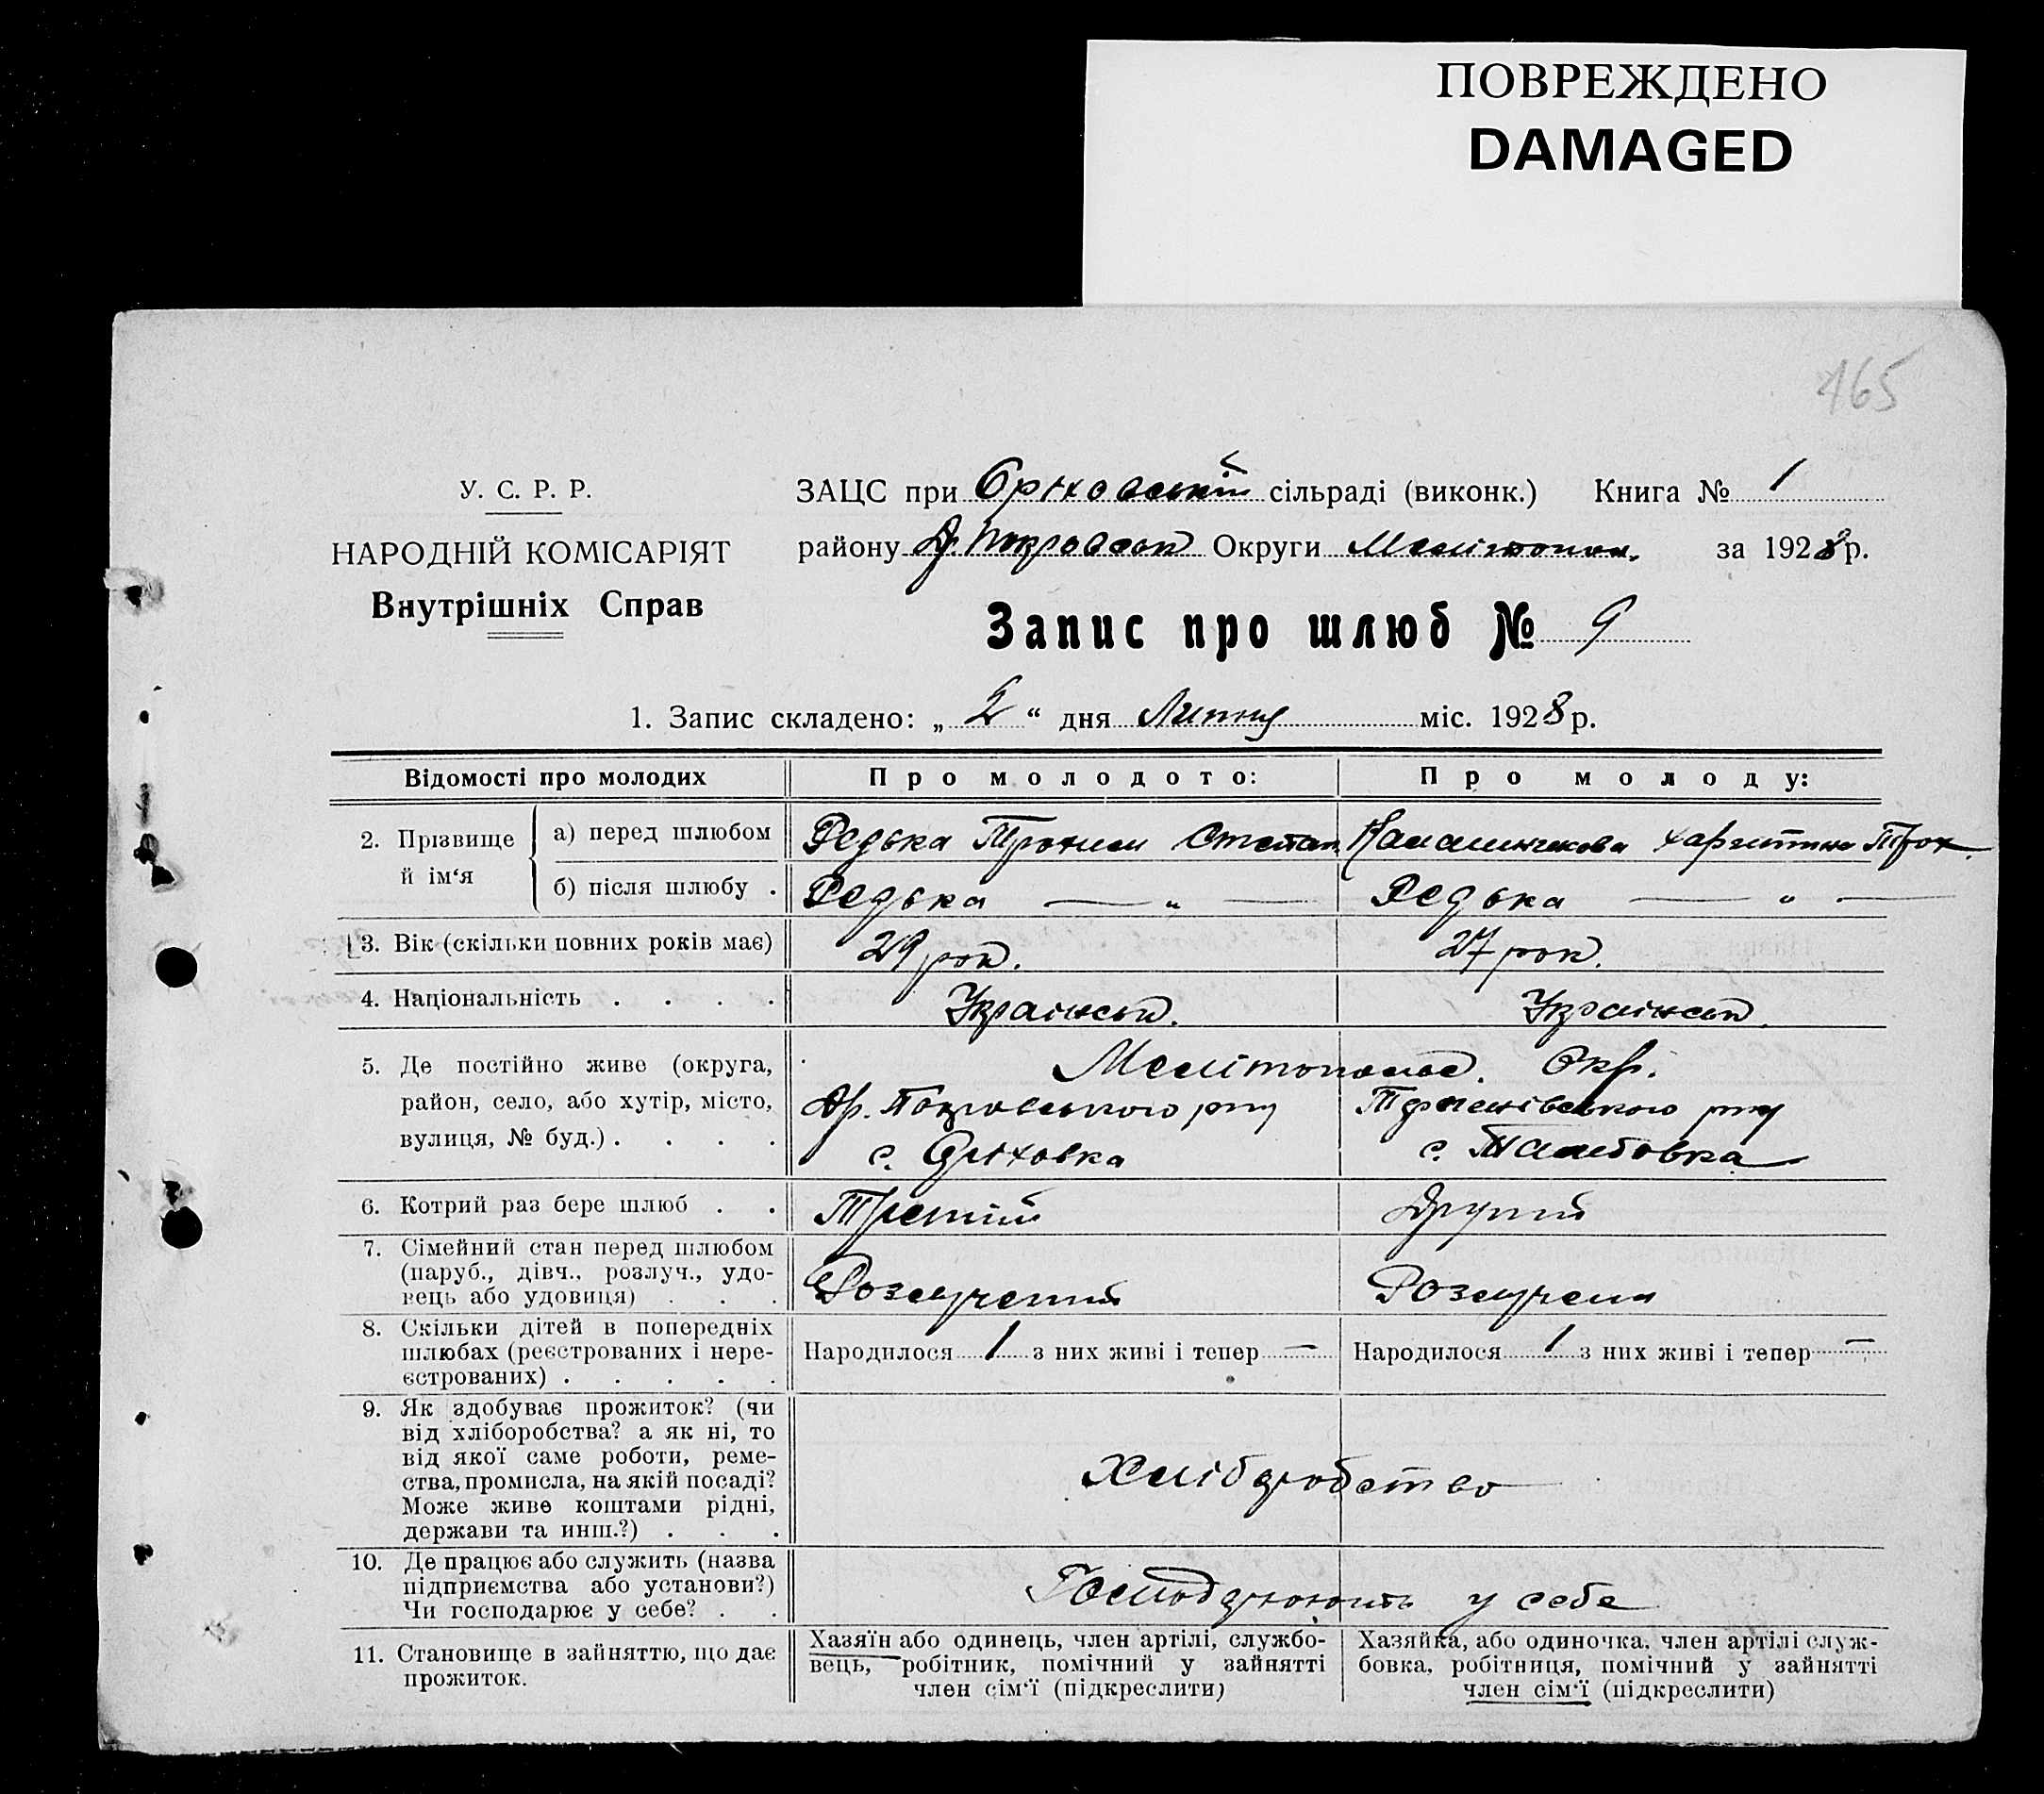 ПОВРЕЖДЕНО
DAMAGED
165
У. С. Р. Р.
НАРОДНІЙ КОМІСАРІЯТ
Внутрішніх Справ
ЗАЦС при Оріховській сільраді (виконк.) Книга № 1
району Др. Покровськ Округи Мелітопол. за 1928 р.
Запис про шлюб № 9
1. Запис складено: „ 2 “ дня Липня міс. 1928 р.
Відомості про молодих
Про молодого:
Про молоду:
2. Прізвище й ім‘я
а) перед шлюбом
Редька Трохим Степан.
Харитина Трох.
б) після шлюбу .
Редька — „ —
Редька — „ —
3. Вік (скільки повних років має)
29 рок.
27 рок.
4. Національність . . . .
Українськ.
Українськ.
5. Де постійно живе (округа,
район, село, або хутір, місто,
вулиця, № буд.) . . . .
Мелітопольс. Окр.
Др. Покровського р-ну
с. Оріховка
р-ну
с.
6. Котрий раз бере шлюб . .
Третій
Другий
7. Сімейний стан перед шлюбом
(паруб., дівч., розлуч., удо-
вець або удовиця) . . .
Розлучений
Розлучена
8. Скільки дітей в попередніх
шлюбах (реєстрованих і нере-
єстрованих) . . . . .
Народилося 1 з них живі і тепер —
Народилося 1 з них живі і тепер —
9. Як здобуває прожиток? (чи
від хліборобства? а як ні, то
від якої саме роботи, реме-
ства, промисла, на якій посаді?
Може живе коштами рідні,
держави та инш.?) . . .
Хліборобство
10. Де працює або служить (назва
підприємства або установи?)
Чи господарює у себе? . .
Господарюють у себе
11. Становище в зайняттю, що дає
прожиток.
Хазяїн або одинець, член артілі, службо-
вець, робітник, помічний у зайнятті
член сім‘ї (підкреслити)
Хазяйка, або одиночка, член артілі служ-
бовка, робітниця, помічний у зайнятті
член сім‘ї (підкреслити)